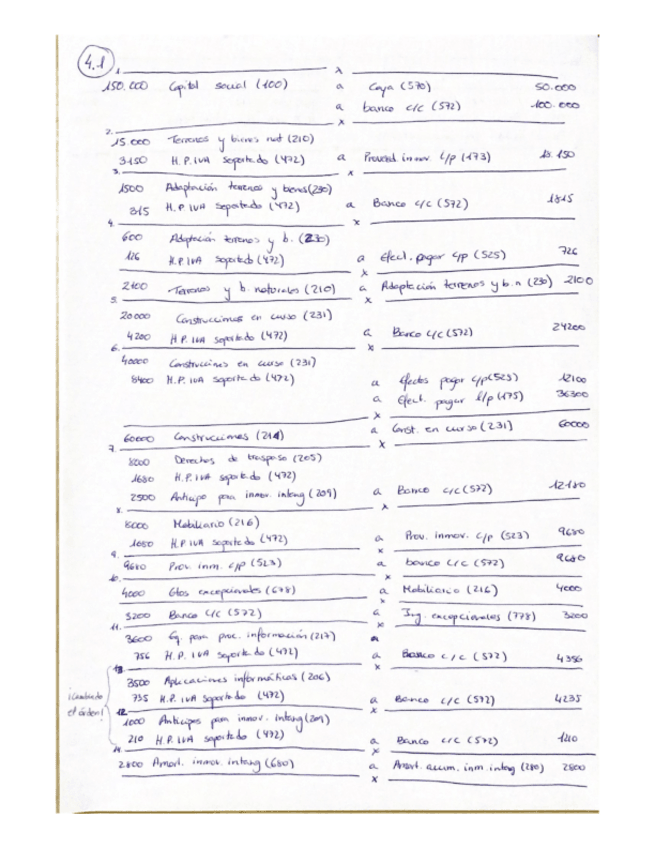 4.1
1.
150.000 Capital social (100) a Caja (570) 50.000
a banco c/c (572) 100.000
2.
15.000 Terrenos y bienes nat (210)
3150 H.P. IVA soportado (472) a Proveed inmov. l/p (173) 18.150
3.
1500 Adaptación terrenos y bienes (230)
315 H.P. IVA soportado (472) a Banco c/c (572) 1815
4.
600 Adaptación terrenos y b. (230)
126 H.P. IVA soportado (472) a Efect. pagar c/p (525) 726
2100 Terrenos y b. naturales (210) a Adaptación terrenos y b.n (230) 2100
5.
20000 Construcciones en curso (231)
4200 H.P. IVA soportado (472) a Banco c/c (572) 24200
6.
40000 Construcciones en curso (231)
8400 H.P. IVA soportado (472)
a efectos pagar c/p (525) 12100
a Efect. pagar l/p (175) 36300
60000 Construcciones (211) a Const. en curso (231) 60000
7.
8000 Derechos de traspaso (205)
1680 H.P. IVA soportado (472)
2500 Anticipo para inmov. intang (209) a Banco c/c (572) 12180
8.
8000 Mobiliario (216)
1680 H.P. IVA soportado (472) a Prov. inmov. c/p (523) 9680
9.
9680 Prov. inm. c/p (523) a banco c/c (572) 9680
10.
4000 Gtos excepcionales (678) a Mobiliario (216) 4000
3200 Banco c/c (572) a Ing. excepcionales (778) 3200
11.
3600 Eq. para proc. información (217) a
756 H.P. IVA soportado (472) a Banco c/c (572) 4356
13.
3500 Aplicaciones informáticas (206)
735 H.P. IVA soportado (472) a Banco c/c (572) 4235
¡cambiado el orden!
12.
1000 Anticipos para inmov. intang (209)
210 H.P. IVA soportado (472) a Banco c/c (572) 1210
14.
2800 Amort. inmov. intang (680) a Amort. acum. inm. intang (280) 2800